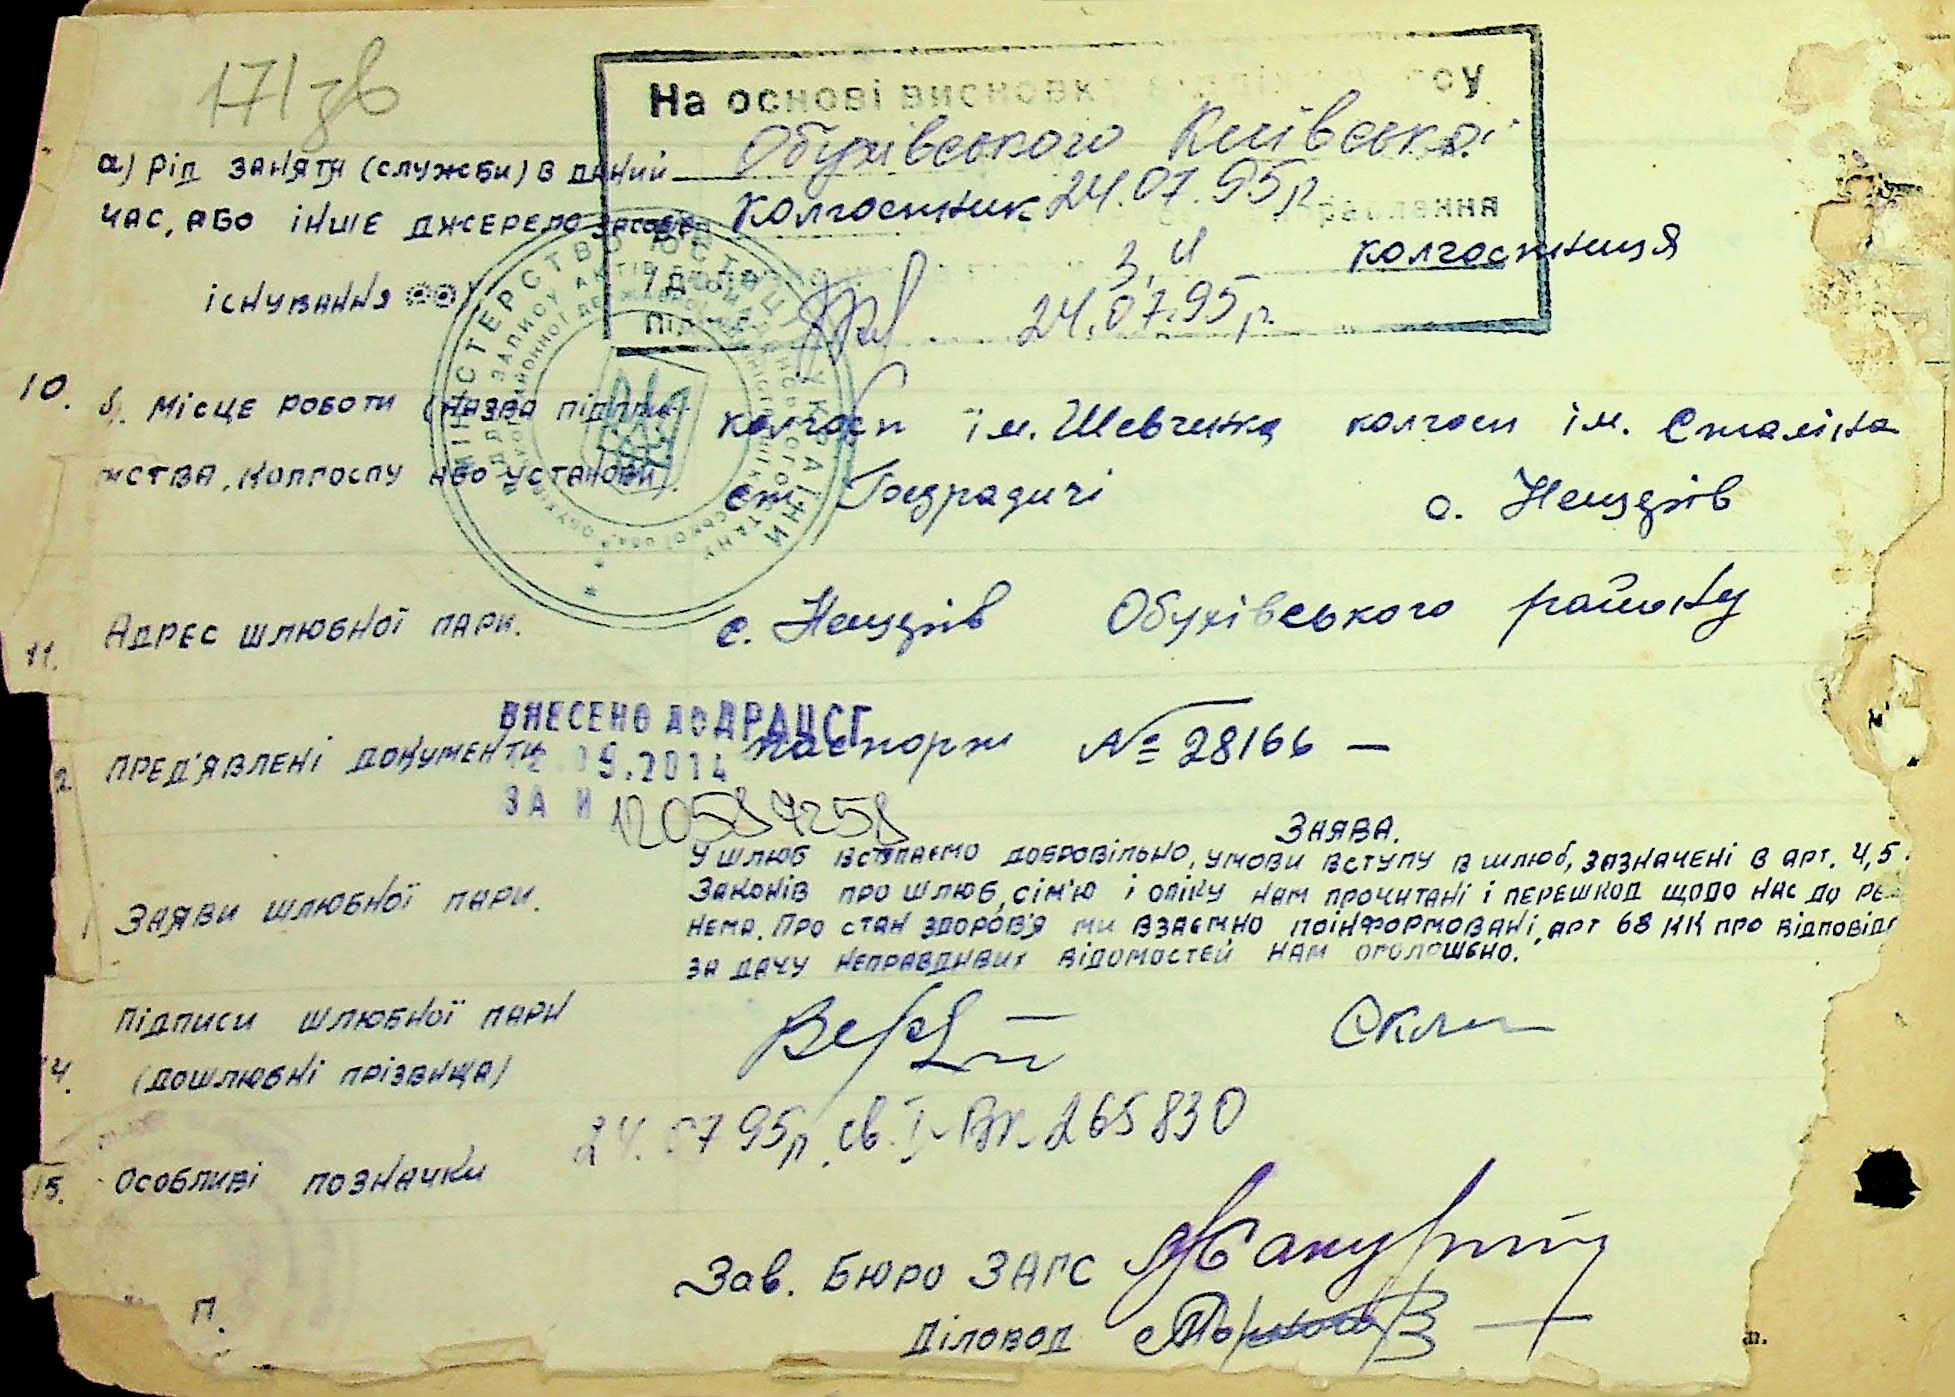 171 зв
На основі висновку
Обухівського Київської
а) рід заняття (служби) в даний
колгоспник 24.07.95р
час, або інше джерело
колгоспниця
24.07.95р.
існування
МІНІСТЕРСТВО ЮСТИЦІЇ УКРАЇНИ
10. б. Місце роботи (назва підпри-
колгосп ім. Шевченка колгосп ім. Сталіна
мства, колгоспу або установи).
ст. с. Нещерів
11. Адрес шлюбної пари.
с. Нещерів Обухівського району
ВНЕСЕНО ДО ДРАЦСГ
Пред'явлені документи
паспорт № 28166 —
.09.2014
ЗА №
Заява.
У шлюб вступаємо добровільно, умови вступу в шлюб, зазначені в арт. 4,5
Законів про шлюб, сім'ю і опіку нам прочитані і перешкод щодо нас до ре
нема. Про стан здоров'я ми взаємно поінформовані, арт 68 КК про відповід
за дачу неправдивих відомостей нам оголошено.
Заяви шлюбної пари.
Підписи шлюбної пари
(дошлюбні прізвища)
24.07 95р. св. І-БК 265830
15. Особливі позначки
Зав. Бюро ЗАГС
Діловод
П.